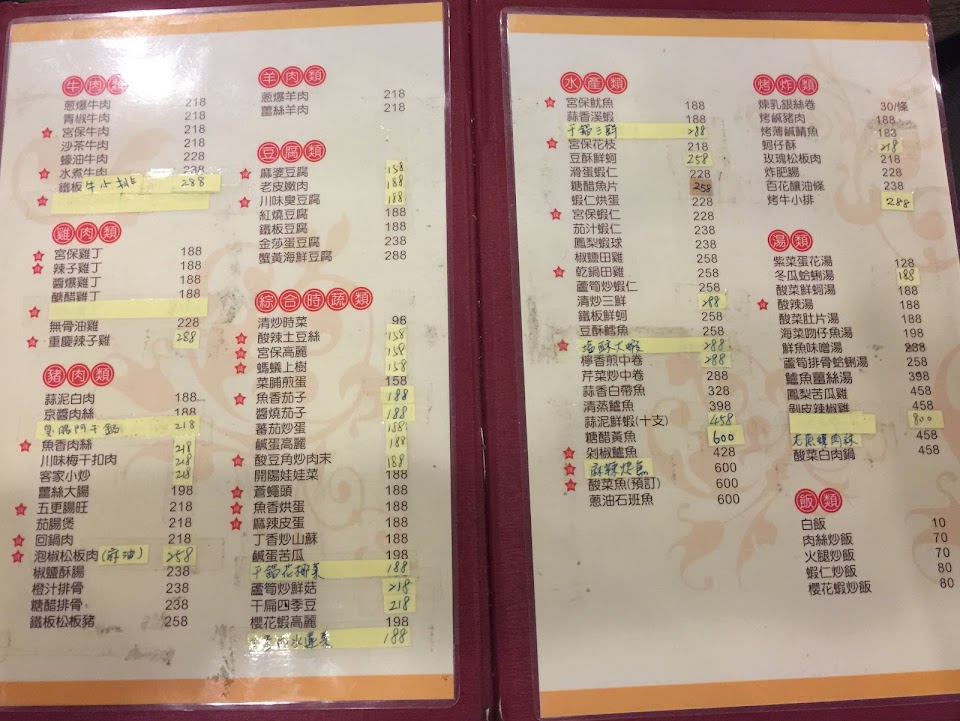 牛肉類
蔥爆牛肉 218
青椒牛肉 218
宮保牛肉 218
沙茶牛肉 218
蠔油牛肉 228
水煮牛肉 218
鐵板牛小排 288
雞肉類
宮保雞丁 188
辣子雞丁 188
醬爆雞丁 188
醋醋雞丁 188
無骨油雞 228
重慶辣子雞 288
豬肉類
蒜泥白肉 188
京醬肉絲 188
218
魚香肉絲 218
川味梅干扣肉 218
客家小炒 218
薑絲大腸 198
五更腸旺 218
茄腸煲 218
回鍋肉 218
泡椒松板肉(麻油) 258
椒鹽酥腸 238
橙汁排骨 238
糖醋排骨 238
鐵板松板豬 258
羊肉類
蔥爆羊肉 218
薑絲羊肉 218
豆腐類
麻婆豆腐 158
老皮嫩肉 188
川味臭豆腐 188
紅燒豆腐 188
鐵板豆腐 188
金莎蛋豆腐 238
蟹黃海鮮豆腐 288
綜合時蔬類
清炒時菜 98
酸辣土豆絲 158
宮保高麗 158
螞蟻上樹 158
菜脯煎蛋 158
魚香茄子 188
醬燒茄子 188
蕃茄炒蛋 158
鹹蛋高麗 188
酸豆角炒肉末 188
開陽娃娃菜 188
蒼蠅頭 188
魚香烘蛋 188
麻辣皮蛋 188
丁香炒山蘇 188
鹹蛋苦瓜 198
干鍋花椰菜 188
蘆筍炒鮮菇 218
干扁四季豆 218
櫻花蝦高麗 198
水蓮菜 188
水產類
宮保魷魚 188
蒜香溪蝦 188
干鍋三鮮 288
宮保花枝 218
豆酥鮮蚵 258
滑蛋蝦仁 228
糖醋魚片 258
蝦仁烘蛋 228
宮保蝦仁 228
茄汁蝦仁 238
鳳梨蝦球 238
椒鹽田雞 258
乾鍋田雞 258
蘆筍炒蝦仁 258
清炒三鮮 288
鐵板鮮蚵 258
豆酥鱈魚 258
酥大蝦 288
檸香煎中卷 288
芹菜炒中卷 288
蒜香白帶魚 328
清蒸鱸魚 398
蒜泥鮮蝦(十支) 458
糖醋黃魚 600
剁椒鱸魚 428
麻辣烤魚 600
酸菜魚(預訂) 600
蔥油石班魚 600
烤炸類
煉乳銀絲卷 30/條
烤鹹豬肉 188
烤薄鹹鯖魚 183
蚵仔酥 218
玫瑰松板肉 218
炸肥腸 228
百花釀油條 238
烤牛小排 288
湯類
紫菜蛋花湯 128
冬瓜蛤蜊湯 188
酸菜鮮蚵湯 188
酸辣湯 188
酸菜肚片湯 188
海菜吻仔魚湯 198
鮮魚味噌湯 238
蘆筍排骨蛤蜊湯 258
鱸魚薑絲湯 398
鳳梨苦瓜雞 458
剝皮辣椒雞 458
800
458
酸菜白肉鍋 458
飯類
白飯 10
肉絲炒飯 70
火腿炒飯 70
蝦仁炒飯 80
櫻花蝦炒飯 80